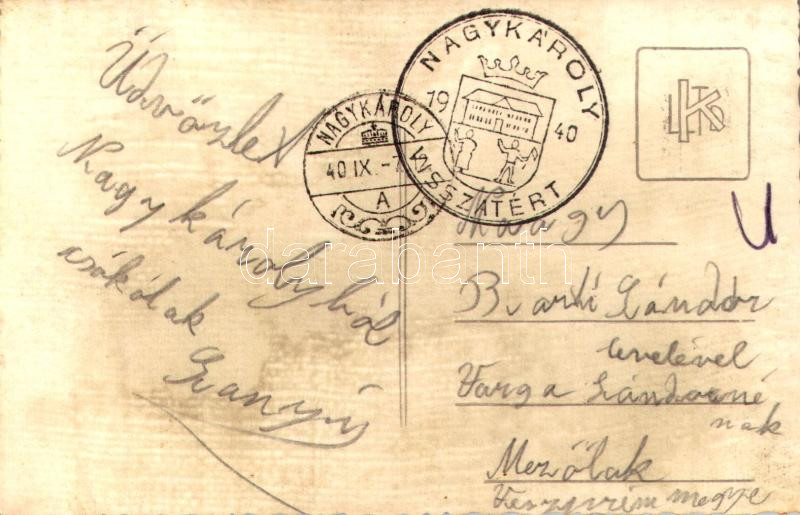 Üdvözlet
Nagykárolyból
csókolak
Sanyi
NAGYKÁROLY
40 IX. -7
A
NAGYKÁROLY
19 40
VISSZATÉRT
Nagy
Sándor
levelével
Varga Sándorné
nak
Mezőlak
Veszprém megye
darabanth